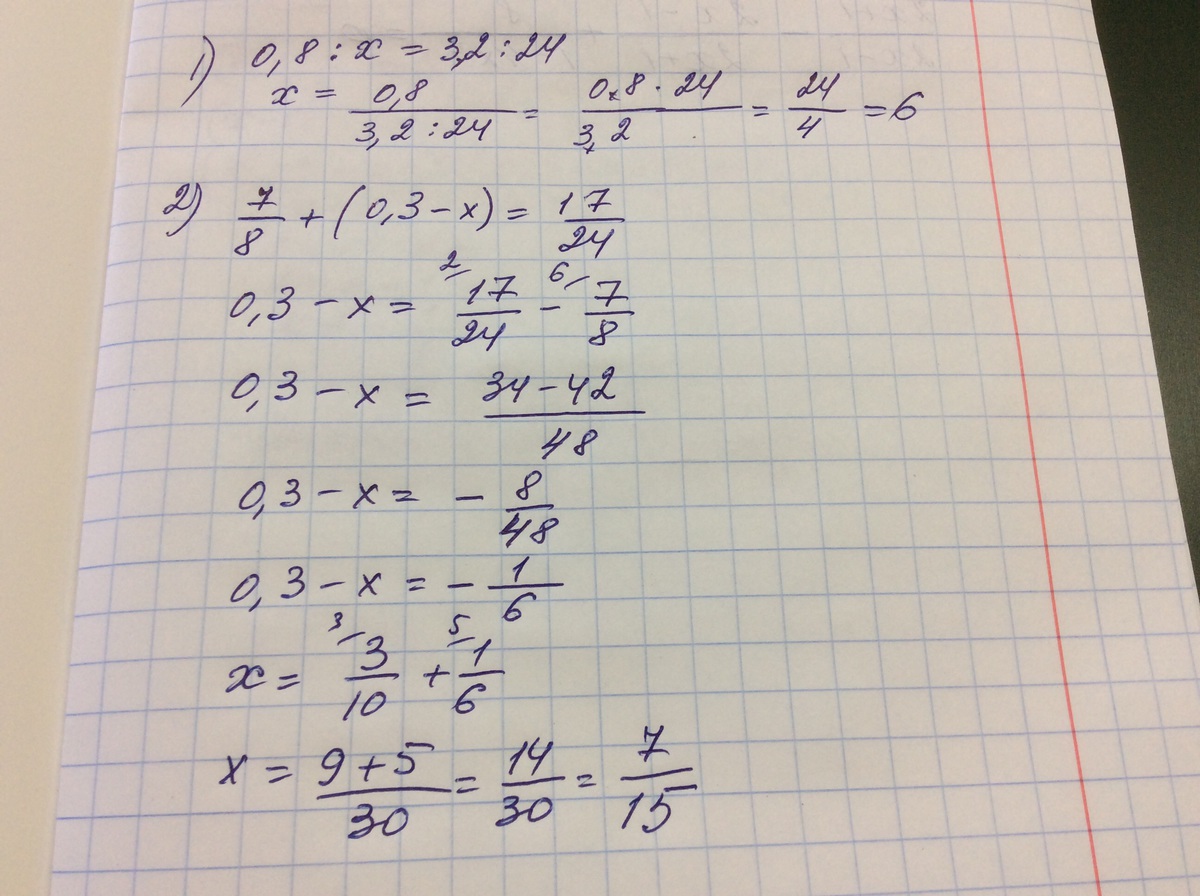 1) 0,8 : x = 3,2 : 24
x = 0,8 / 3,2 : 24 = 0,8 · 24 / 3,2 = 24/4 = 6
2) 7/8 + (0,3 - x) = 17/24
0,3 - x = 2/ 17/24 - 6/ 7/8
0,3 - x = 34 - 42 / 48
0,3 - x = - 8/48
0,3 - x = - 1/6
x = 3/ 3/10 + 5/ 1/6
x = 9 + 5 / 30 = 14/30 = 7/15